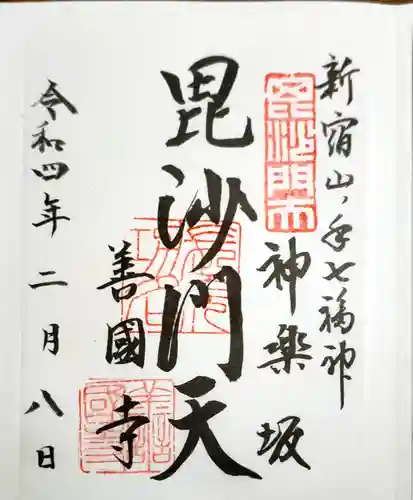 新宿山ノ手七福神
神楽坂
毘沙門天
善國寺
令和四年二月八日
毘沙門天